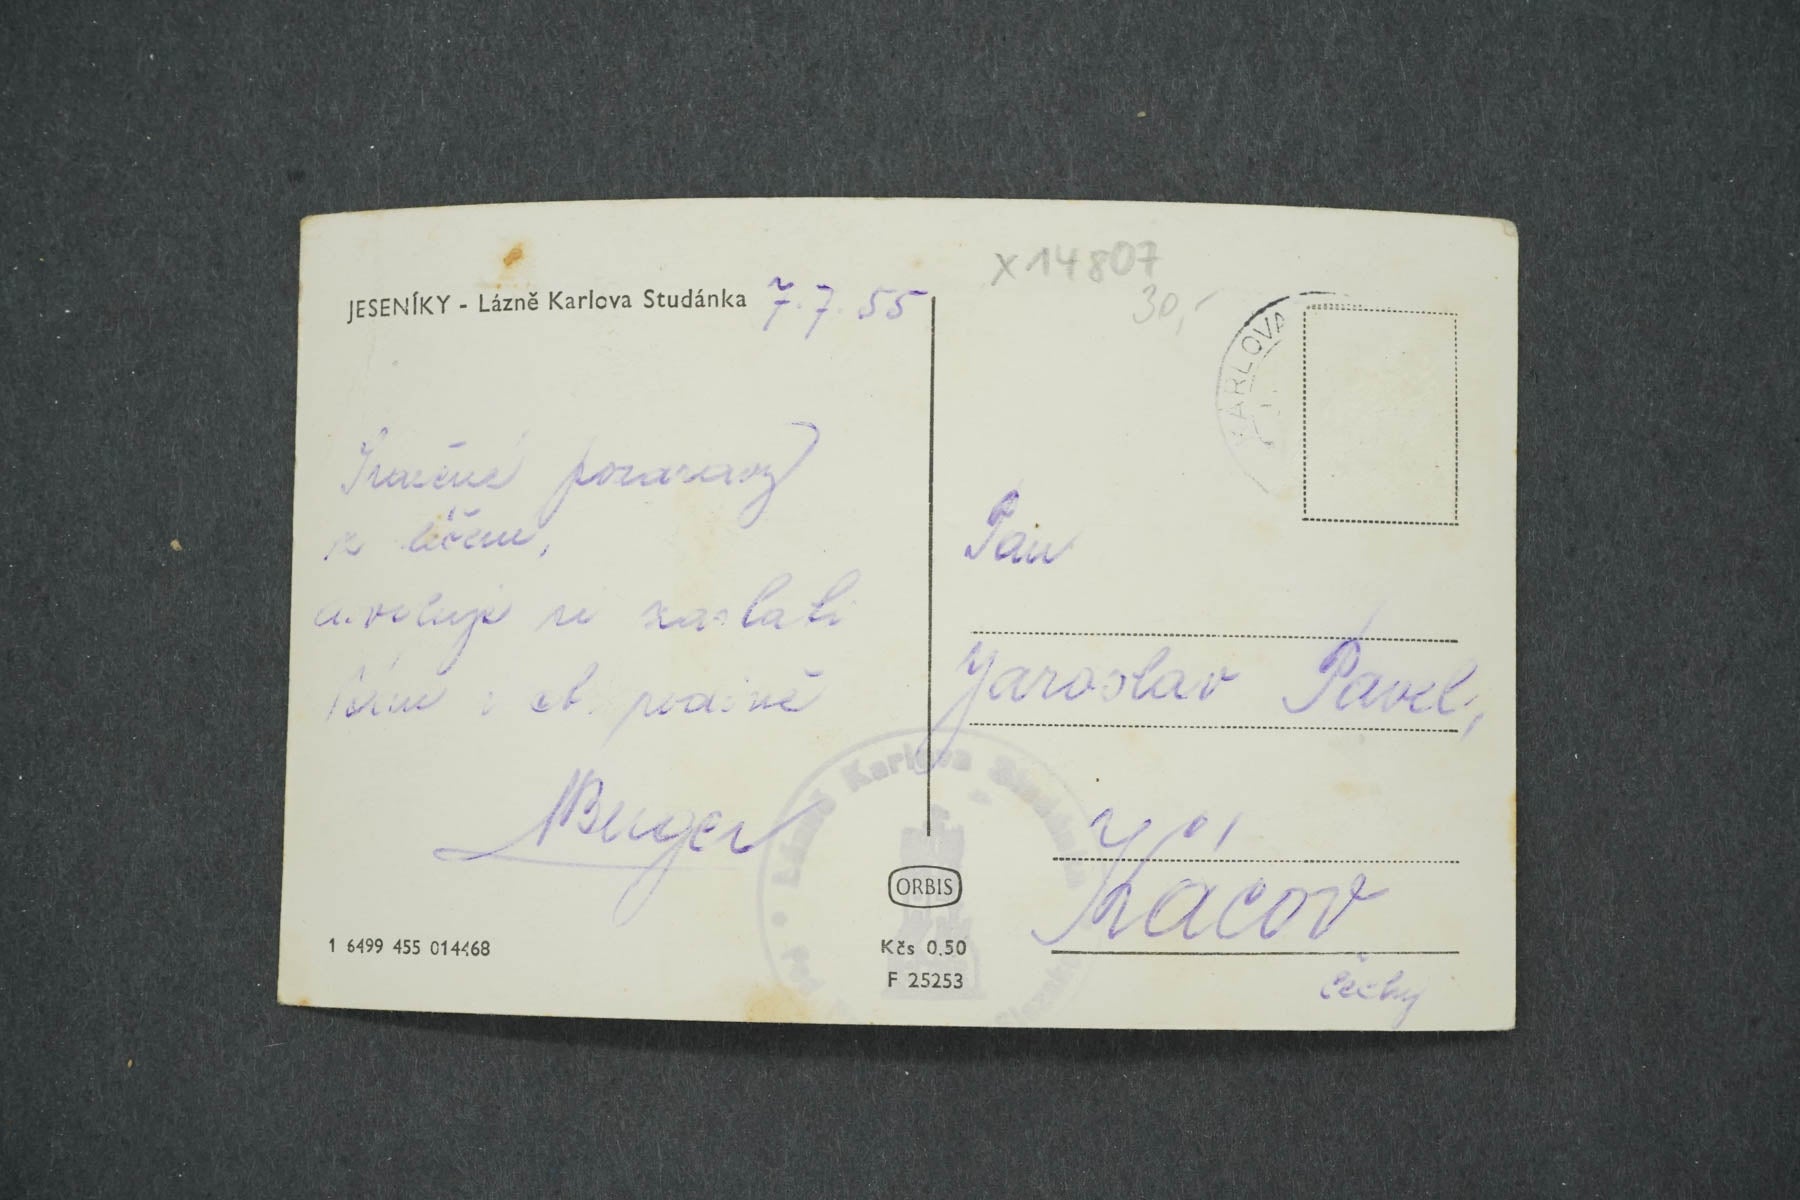 JESENÍKY - Lázně Karlova Studánka 7.7.55
Srdečné pozdravy
z léčení,
dovoluji si zaslati
Vám i ct. rodině
Burger
1 6499 455 014468
ORBIS
Kčs 0,50
F 25253
x 14807
30,-
KARLOVA
Pan
Jaroslav Pavel,
Kácov
Čechy
Lázně Karlova Studánka